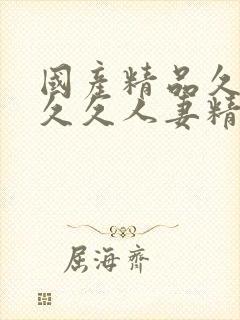 國產精品久
久久人妻精
屈海齊